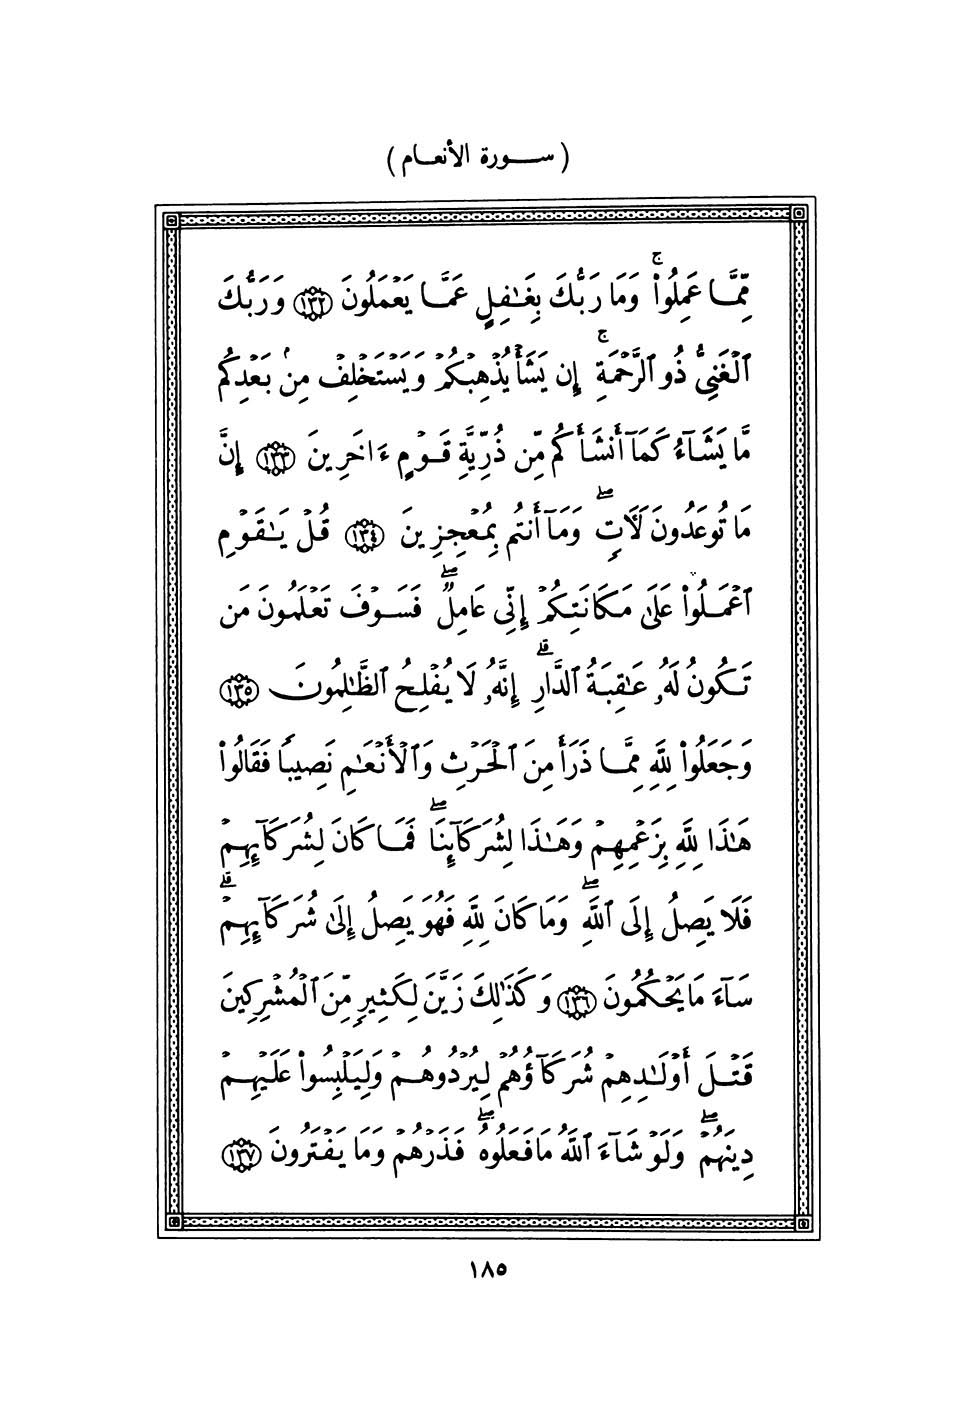 ( ســورة الأنعـام )
مِّمَّا عَمِلُوا۟ ۚ وَمَا رَبُّكَ بِغَـٰفِلٍ عَمَّا يَعْمَلُونَ ﴿١٣٢﴾ وَرَبُّكَ
ٱلْغَنِىُّ ذُو ٱلرَّحْمَةِ ۚ إِن يَشَأْ يُذْهِبْكُمْ وَيَسْتَخْلِفْ مِنۢ بَعْدِكُم
مَّا يَشَآءُ كَمَآ أَنشَأَكُم مِّن ذُرِّيَّةِ قَوْمٍ ءَاخَرِينَ ﴿١٣٣﴾ إِنَّ
مَا تُوعَدُونَ لَـَٔاتٍ ۖ وَمَآ أَنتُم بِمُعْجِزِينَ ﴿١٣٤﴾ قُلْ يَـٰقَوْمِ
ٱعْمَلُوا۟ عَلَىٰ مَكَانَتِكُمْ إِنِّى عَامِلٌ ۖ فَسَوْفَ تَعْلَمُونَ مَن
تَكُونُ لَهُۥ عَـٰقِبَةُ ٱلدَّارِ ۗ إِنَّهُۥ لَا يُفْلِحُ ٱلظَّـٰلِمُونَ ﴿١٣٥﴾
وَجَعَلُوا۟ لِلَّهِ مِمَّا ذَرَأَ مِنَ ٱلْحَرْثِ وَٱلْأَنْعَـٰمِ نَصِيبًا فَقَالُوا۟
هَـٰذَا لِلَّهِ بِزَعْمِهِمْ وَهَـٰذَا لِشُرَكَآئِنَا ۖ فَمَا كَانَ لِشُرَكَآئِهِمْ
فَلَا يَصِلُ إِلَى ٱللَّهِ ۖ وَمَا كَانَ لِلَّهِ فَهُوَ يَصِلُ إِلَىٰ شُرَكَآئِهِمْ ۗ
سَآءَ مَا يَحْكُمُونَ ﴿١٣٦﴾ وَكَذَٰلِكَ زَيَّنَ لِكَثِيرٍ مِّنَ ٱلْمُشْرِكِينَ
قَتْلَ أَوْلَـٰدِهِمْ شُرَكَآؤُهُمْ لِيُرْدُوهُمْ وَلِيَلْبِسُوا۟ عَلَيْهِمْ
دِينَهُمْ ۖ وَلَوْ شَآءَ ٱللَّهُ مَا فَعَلُوهُ ۖ فَذَرْهُمْ وَمَا يَفْتَرُونَ ﴿١٣٧﴾
١٨٥